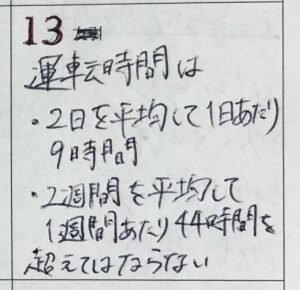 13
運転時間は
・2日を平均して1日あたり
9時間
・2週間を平均して
1週間あたり44時間を
超えてはならない